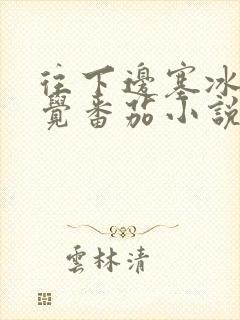 往下邊塞冰
覺番茄小說
雲林清